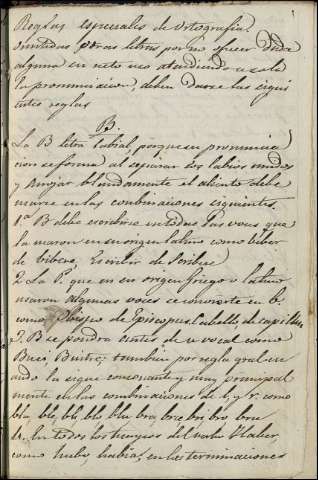 Reglas especiales de Ortografia.
Omitidas otras letras por no ofrecer duda
alguna en neto uso atendiendo a sola
la pronunciacion, deben darse las sigui
entes reglas
B.
La B letra labial, porque su pronuncia
cion se forma al separar los labios unidos
y arrojar blandamente el aliento debe
usarse en las combinaciones siguientes.
1ª B debe escribirse en todas las voces que
la usaron en su origen latino como beber
de bibere, Escribir de Scribere
2. La P. que en su origen griego o latino
usaron algunas voces se convierte en b.
como Obispo de Episcopus, Cabello, de capillus
3. B se pondra antes de u vocal como
Buei Buitre; tambien por regla gral cu
ando la sigue consonante y muy principal
mente de las combinaciones de l, y r. como
bla ble, bli, blo, blu bra, bre, bri bro bru
4. En todos los tiempos del verbo Haber,
como hubo, habia, en las terminaciones